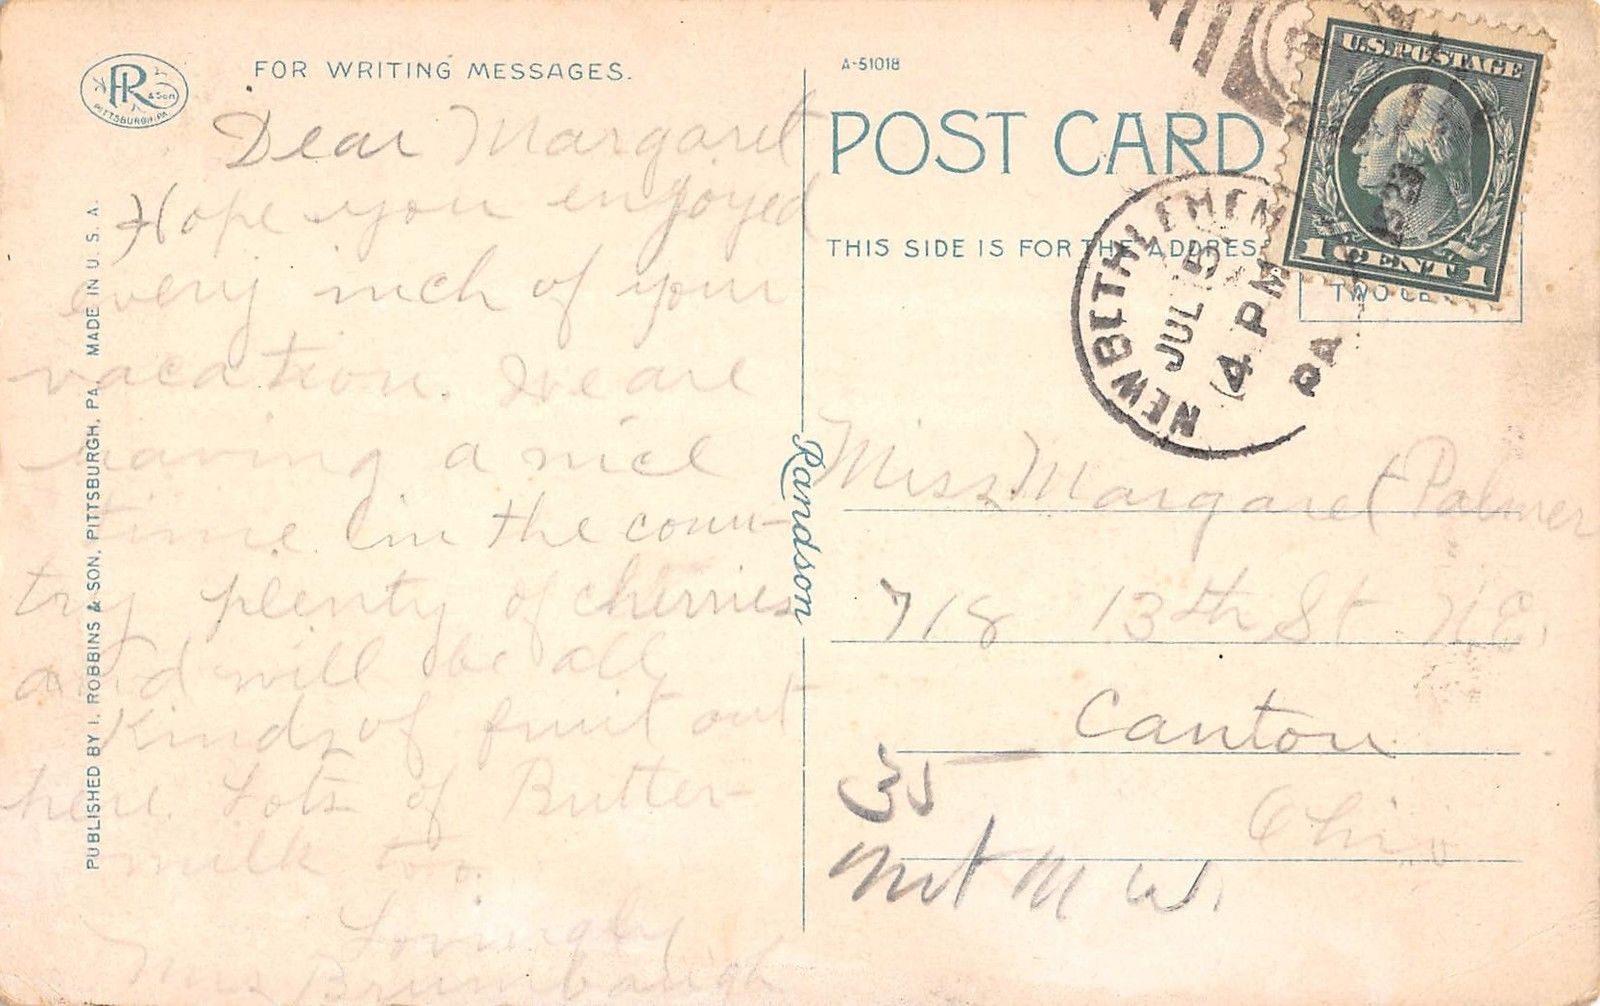 FOR WRITING MESSAGES.
PR & Son
PITTSBURGH, PA.
Dear Margaret
Hope you enjoyed
every inch of your
vacation. We are
having a nice
time in the coun-
try plenty of cherries
and will be all
kinds of fruit out
here. Lots of Butter-
milk too.
Lovingly
Mrs Brumbaugh
PUBLISHED BY I. ROBBINS & SON, PITTSBURGH, PA. MADE IN U. S. A.
Randson
A-51018
POST CARD
THIS SIDE IS FOR THE ADDRES
U.S. POSTAGE
1 CENT 1
TWO CE
NEW BETHLEHEM
JUL 5
4 PM
PA
Miss Margaret Palmer
718 13th St N.E.
Canton
Ohio
35
M W.